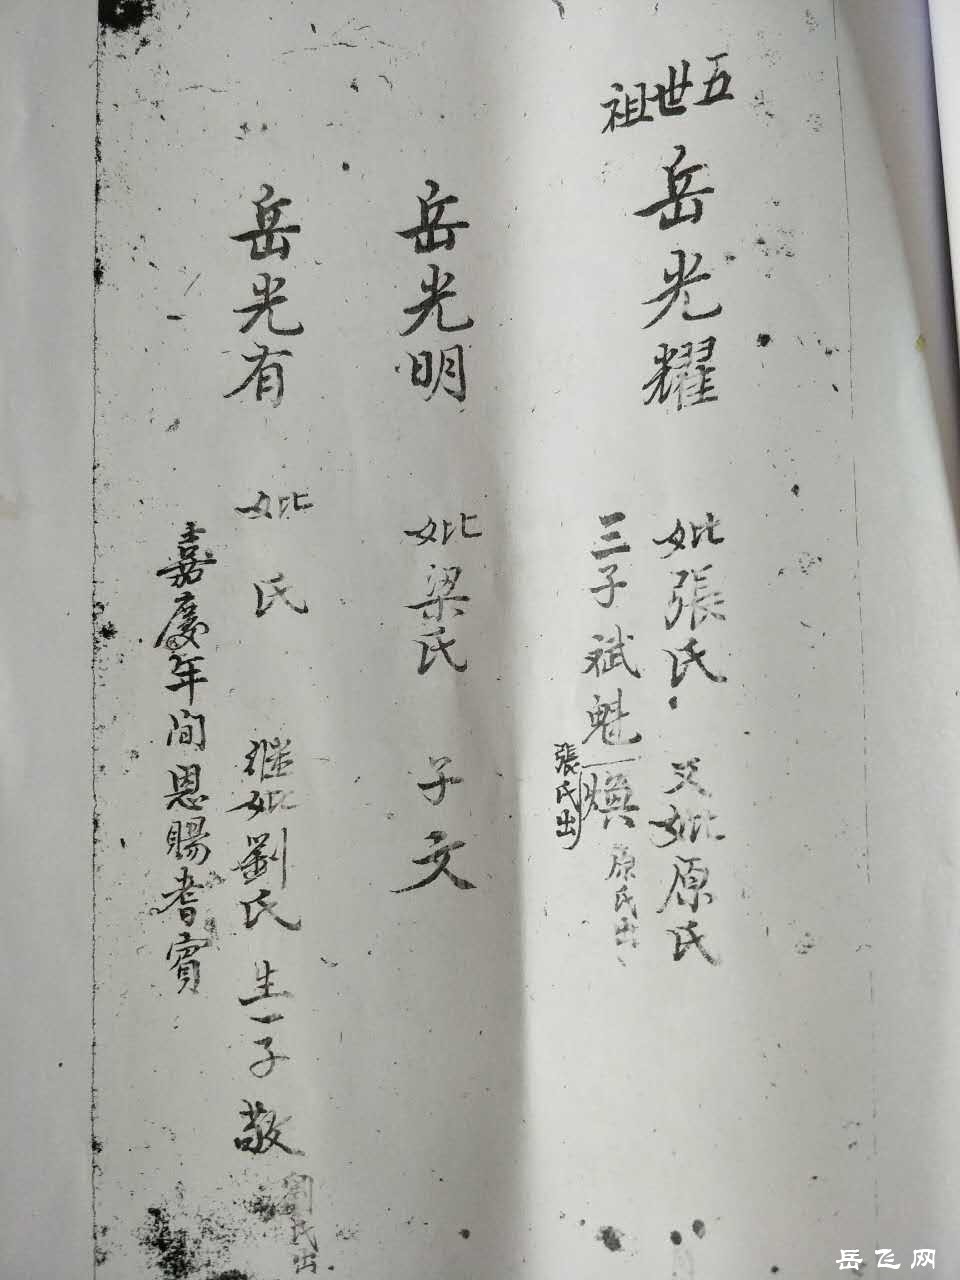 五世祖
岳光耀
妣張氏 又妣原氏
三子斌魁煥
張氏出
原氏出
岳光明
妣梁氏 子文
岳光有
妣 氏 継妣劉氏 生一子敬
劉氏出
嘉慶年间恩賜耆賓
岳飞网